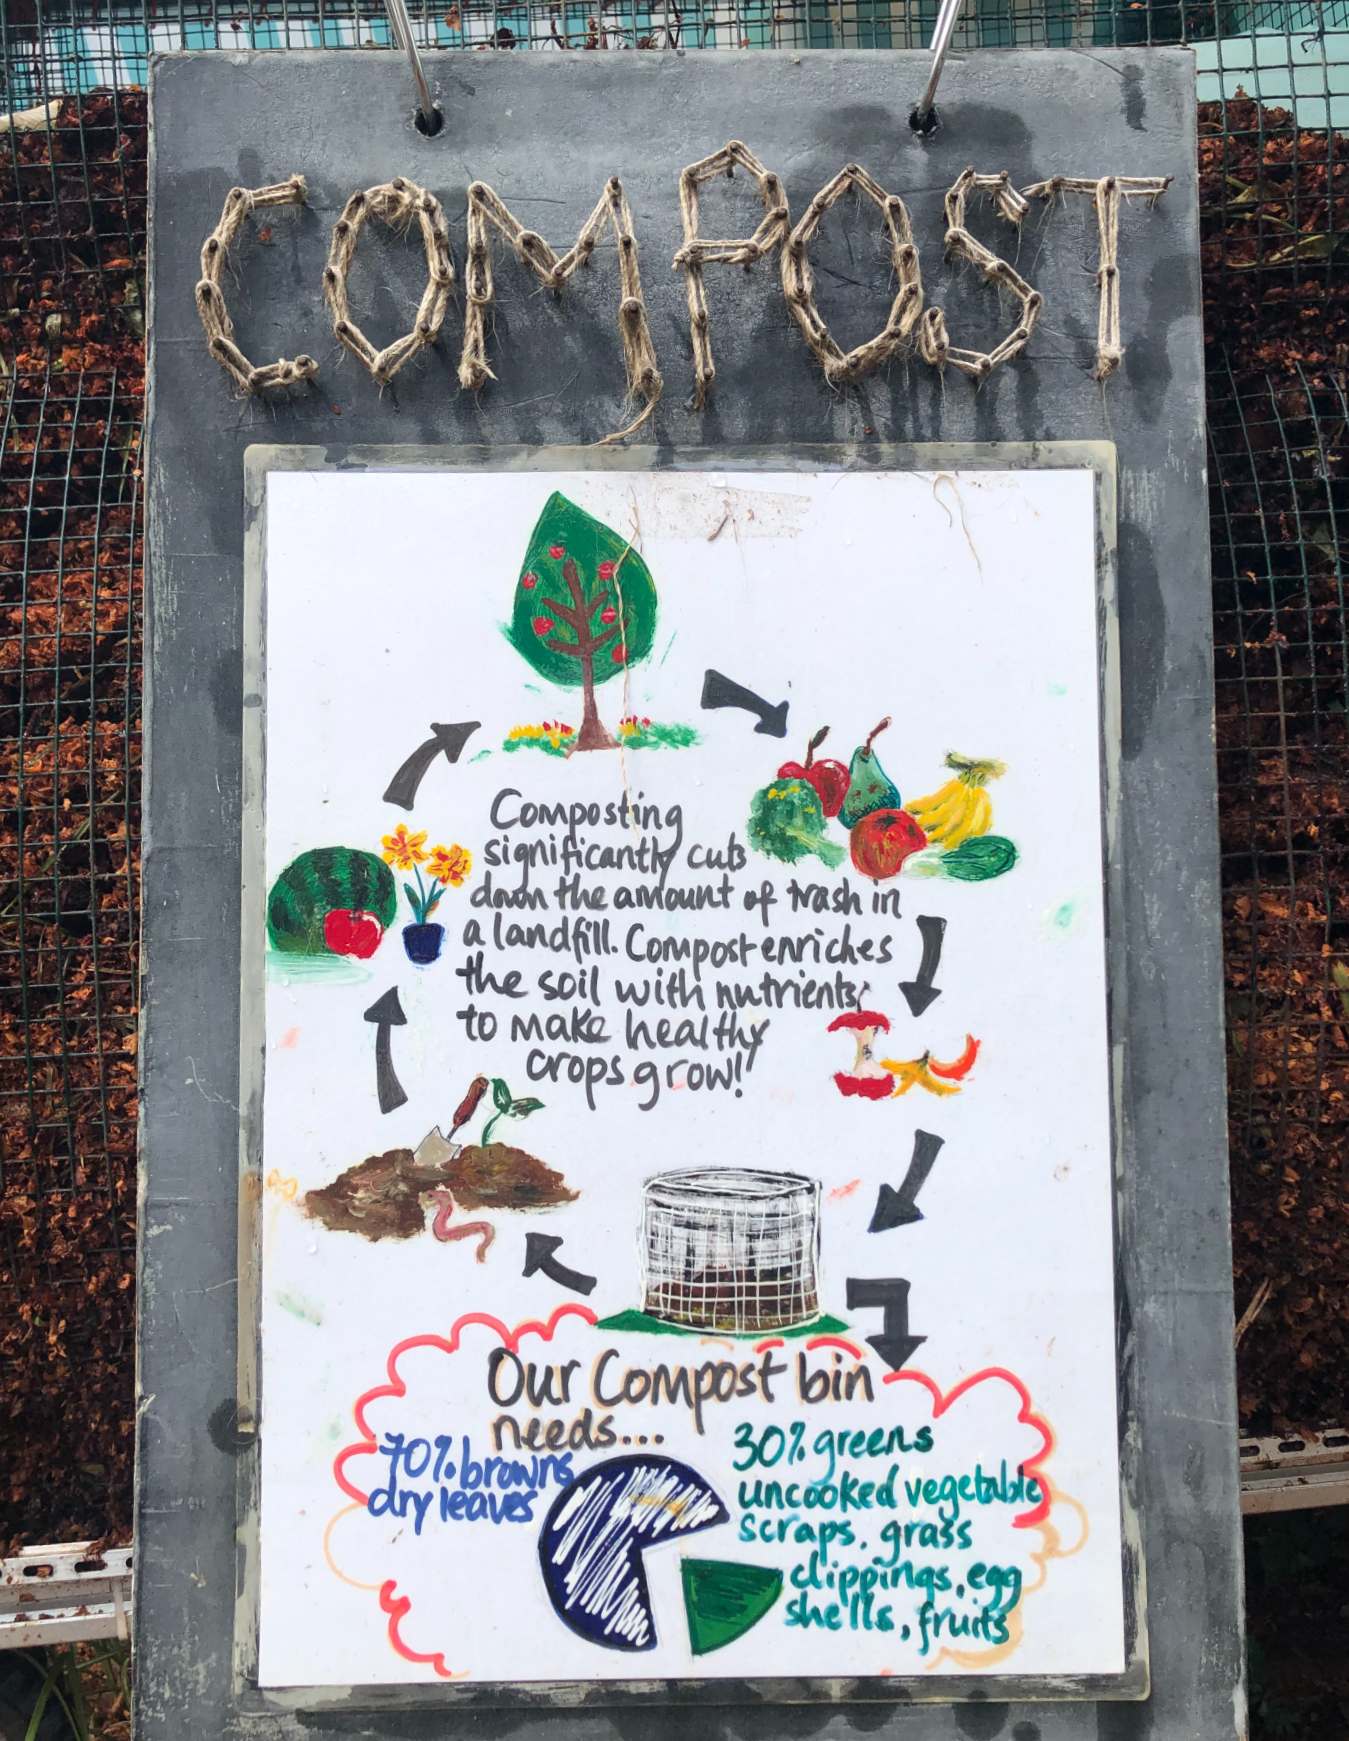 COMPOST
Composting
significantly cuts
down the amount of trash in
a landfill. Compost enriches
the soil with nutrients
to make healthy
crops grow!
Our Compost bin
needs...
70% browns
dry leaves
30% greens
uncooked vegetable
scraps, grass
clippings, egg
shells, fruits